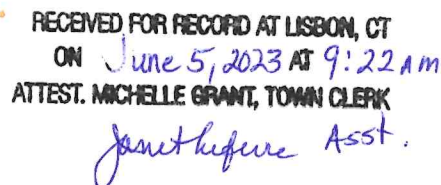 RECEIVED FOR RECORD AT LISBON, CT
ON June 5, 2023 AT 9:22 AM
ATTEST. MICHELLE GRANT, TOWN CLERK
Asst.